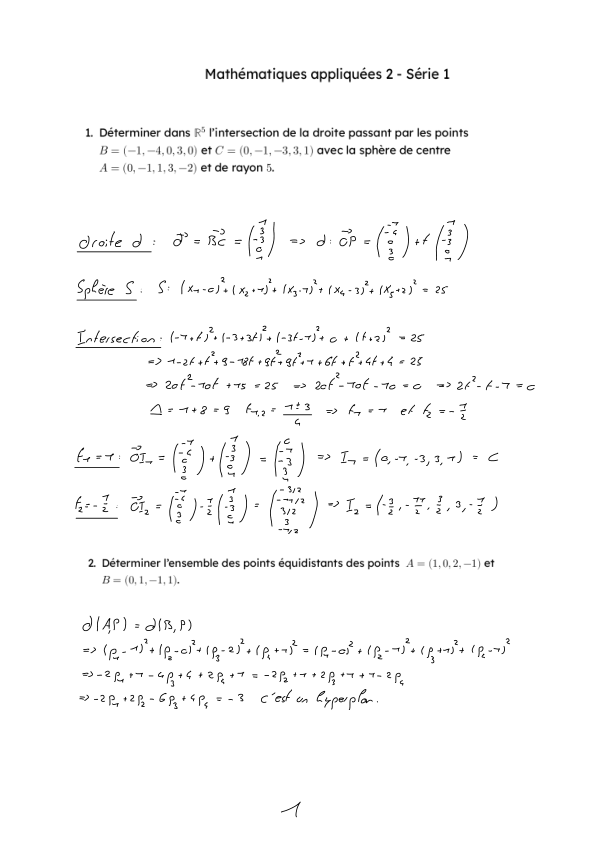 Mathématiques appliquées 2 - Série 1
1. Déterminer dans ℝ⁵ l'intersection de la droite passant par les points
B = (−1, −4, 0, 3, 0) et C = (0, −1, −3, 3, 1) avec la sphère de centre
A = (0, −1, 1, 3, −2) et de rayon 5.
droite d : d⃗ = BC⃗ = (1 3 -3 0 1) => d: OP⃗ = (-1 -4 0 3 0) + t (1 3 -3 0 1)
Sphère S : S: (x₁-0)² + (x₂+1)² + (x₃-1)² + (x₄-3)² + (x₅+2)² = 25
Intersection : (-1+t)² + (-3+3t)² + (-3t-1)² + 0 + (t+2)² = 25
=> 1-2t+t²+9-18t+9t²+9t²+1+6t+t²+4t+4 = 25
=> 20t²-10t+15 = 25 => 20t²-10t-10 = 0 => 2t²-t-1 = 0
Δ = 1+8 = 9 t₁,₂ = (1±3)/4 => t₁ = 1 et t₂ = -1/2
t₁ = 1 : OI₁⃗ = (-1 -4 0 3 0) + (1 3 -3 0 1) = (0 -1 -3 3 1) => I₁ = (0, -1, -3, 3, 1) = C
t₂ = -1/2 : OI₂⃗ = (-1 -4 0 3 0) - 1/2 (1 3 -3 0 1) = (-3/2 -11/2 3/2 3 -1/2) => I₂ = (-3/2, -11/2, 3/2, 3, -1/2)
2. Déterminer l'ensemble des points équidistants des points A = (1, 0, 2, −1) et
B = (0, 1, −1, 1).
d(A,P) = d(B,P)
=> (p₁-1)² + (p₂-0)² + (p₃-2)² + (p₄+1)² = (p₁-0)² + (p₂-1)² + (p₃+1)² + (p₄-1)²
=> -2p₁+1-4p₃+4+2p₄+1 = -2p₂+1+2p₃+1+1-2p₄
=> -2p₁+2p₂-6p₃+4p₄ = -3 c'est un hyperplan.
1